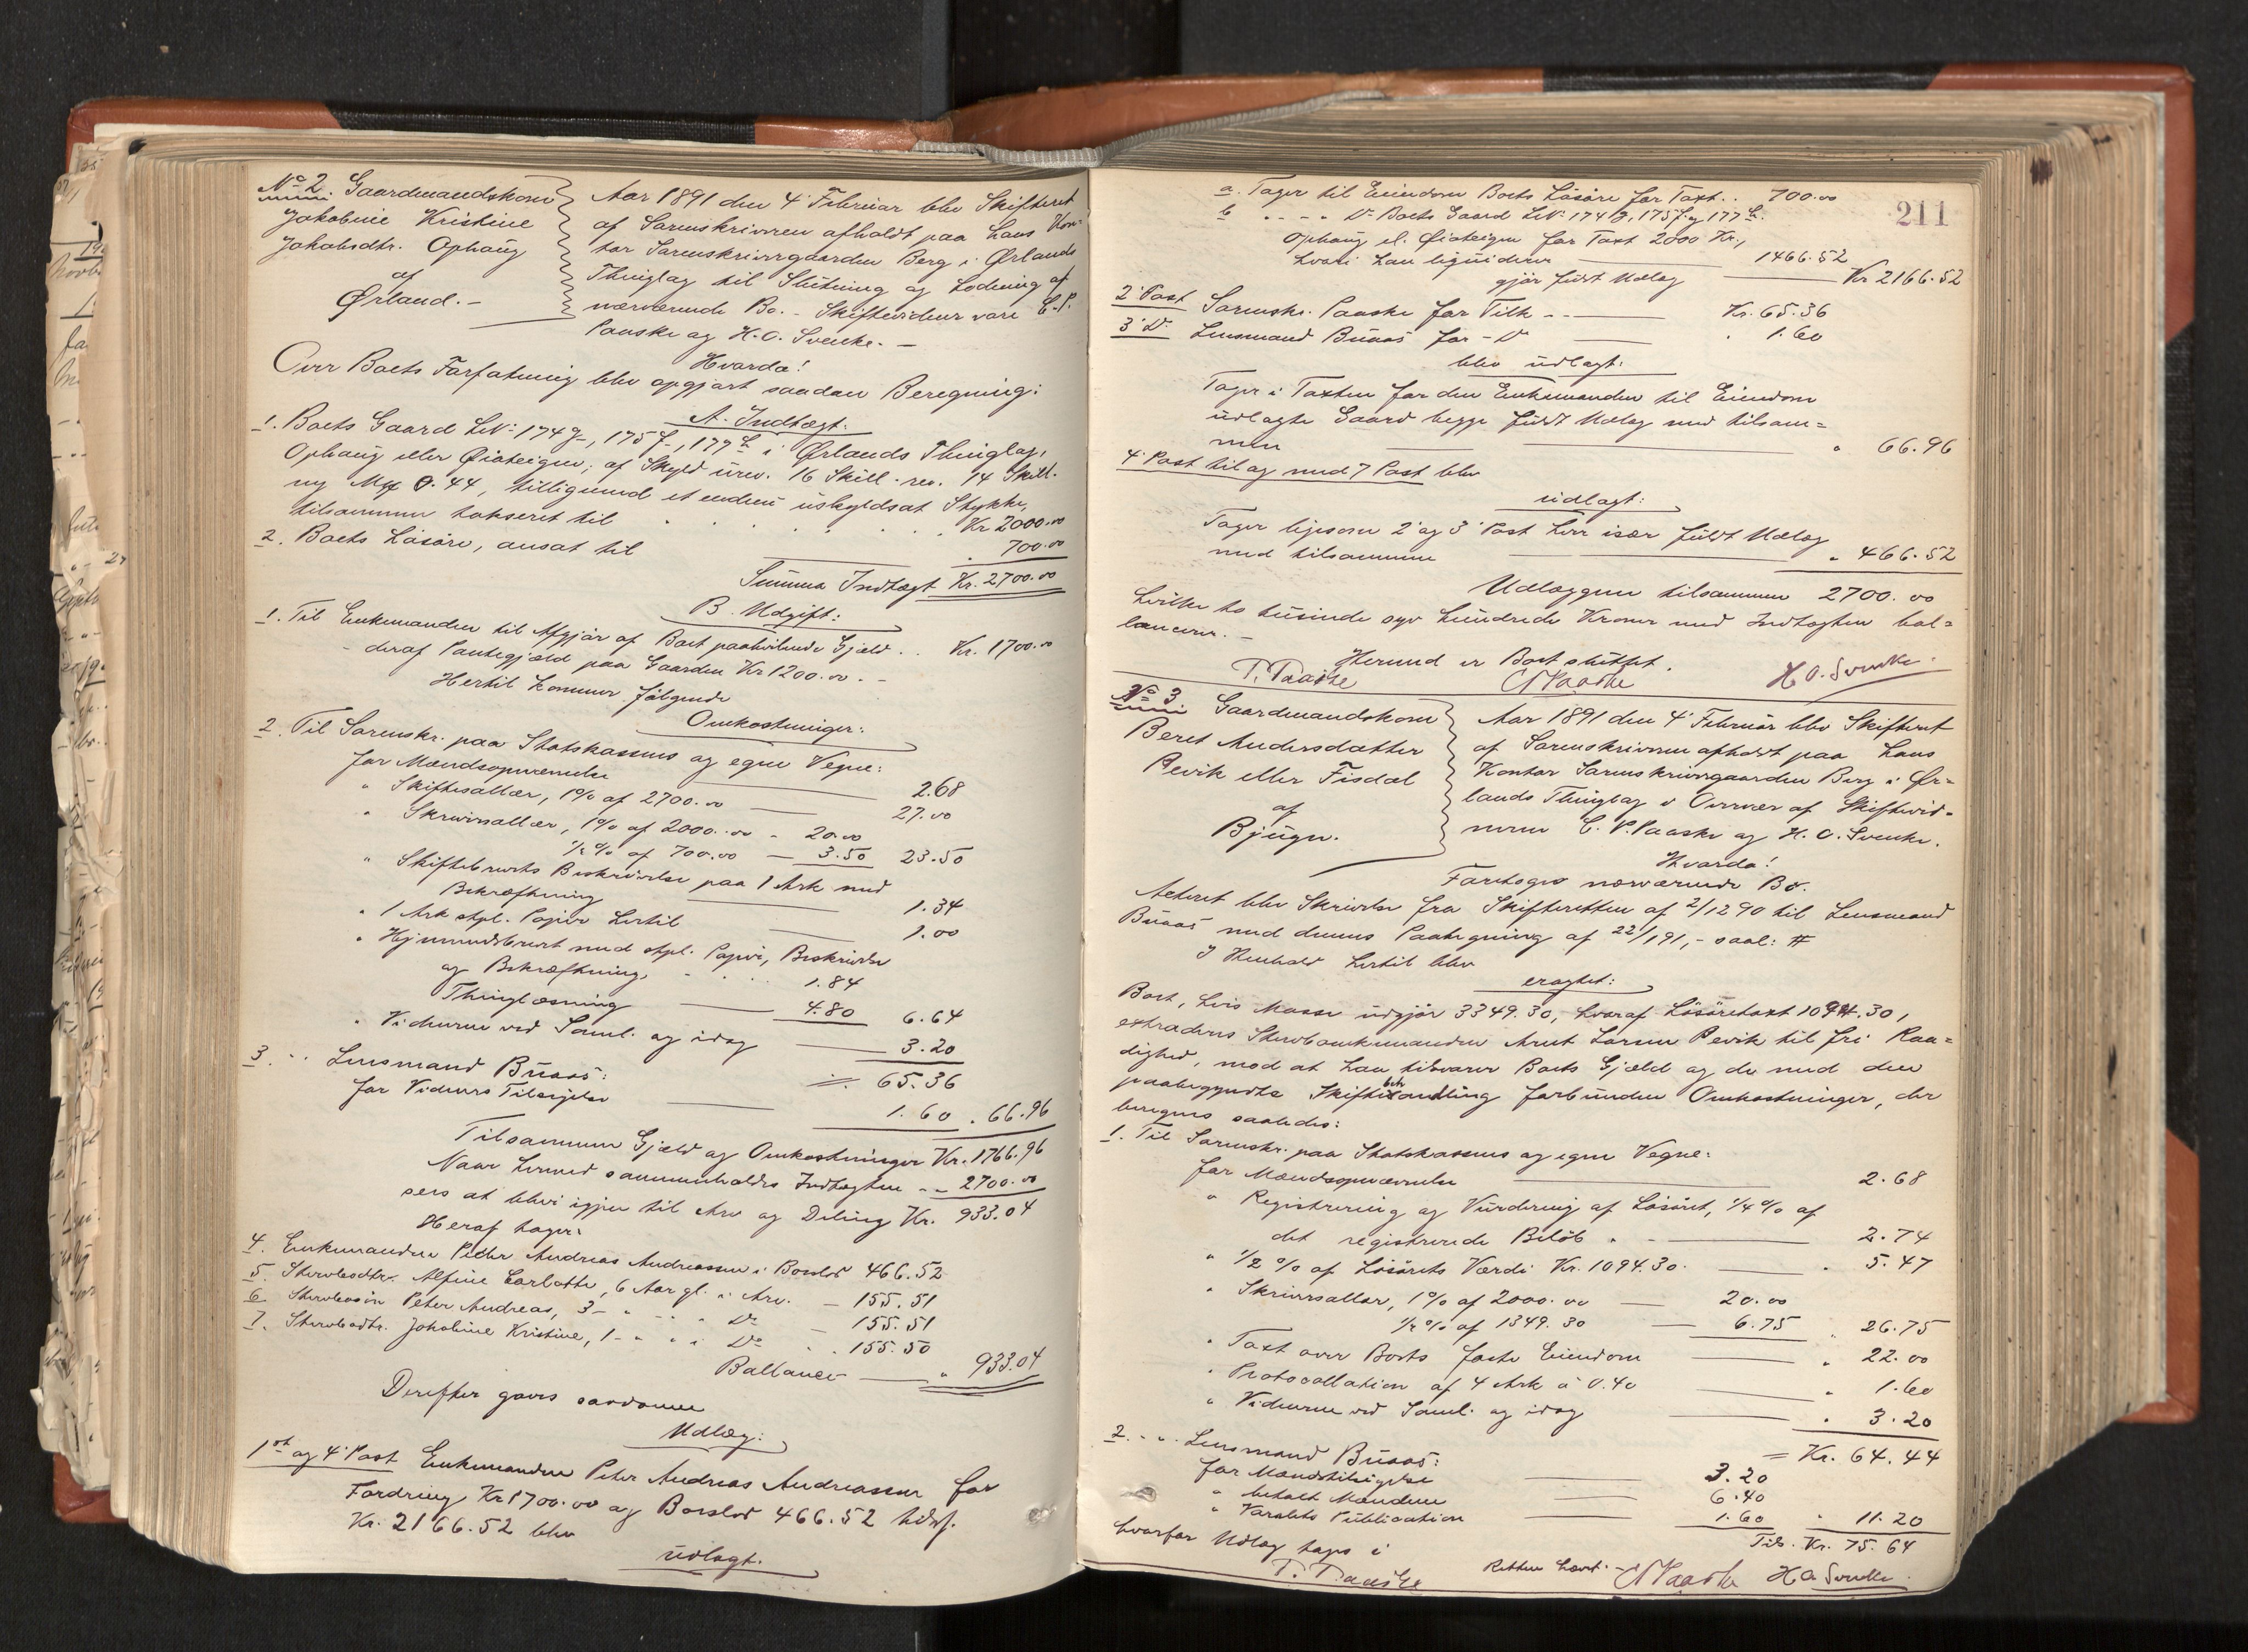 No 2. Gaardmandskone
Jakobine Kristine
Jakobsdtr. Ophaug
af
Ørland. -
Aar 1891 den 4' Februar blev Skifteret
af Sorenskriveren afholdt paa hans Kon=
tor Sorenskrivergaarden Berg i Ørlands
Thinglag til Slutning og Lodning af
nærværende Bo. - Skiftevidner vare C. P.
Paaske og H. O. Svenke. -
Hvorda!
Over Boets Forfatning blev opgjort saadan Beregning:
A. Indtægt:
1. Boets Gaard LNo: 174 g-, 175 f-, 177 b i Ørlands Thinglag,
Ophaug eller Øiateigen, af Skyld urev. 16 Skill. rev. 14 Skill.
ny Mk 0.44, tilligemed et endnu uskyldsat Stykke,
tilsammen takseret til . . . . Kr 2000.00
2. Boets Løsøre, ansat til . 700.00
Summa Indtægt Kr. 2700.00
B. Udgift:
1. Til Enkemanden til Afgjør af Boet paahvilende Gjæld . . Kr. 1700.00
- deraf Pantegjæld paa Gaarden Kr 1200.00. -
Hertil kommer følgende
Omkostninger:
2. Til Sorenskr. paa Statskassens og egne Vegne:
for Mændsopnævnelse 2.68
" Skiftesallær, 1% af 2700.00 27.00
" Skriversallær, 1% af 2000.00 - 20.00
1/2% af 700.00 - 3.50 23.50
" Skiftebrevets Beskrivelse paa 1 Ark med
Bekræftning 1.34
" 1 Ark stpl. Papir hertil 1.00
" Hjemmelsbrevet med stpl. Papir, Beskrivelse
og Bekræftning, . . . 1.84
Thinglæsning 4.80 6.64
" Vidnerne ved Saml. og idag 3.20
65.36
3. - " Lensmand Buaas:
for Vidners Tilsigelse 1.60 . 66.96
Tilsammen Gjæld og Omkostninger Kr. 1766.96
Naar hermed sammenholdes Indtægten - - 2700.00
sees at blive igjen til Arv og Deling Kr. 933.04
Heraf tager:
4. Enkemanden Peter Andreas Andreassen i Boeslod 466.52
5. Stervbodtr. Alfine Carlotte, 6 Aar gl. i Arv. - 155.51
6. Stervbosøn Peter Andreas, 3 - " - " Do - 155.51
7. Stervbodtr. Jakobine Kristine, 1 - " " i Do . . 155.50
Ballance - " 933.04
Derefter gaves saadanne
Udlæg:
1st og 4' Post Enkemanden Peter Andreas Andreassen for
Fordring Kr 1700.00 og Boeslod 466.52 tils.
Kr. 2166.52 blev
udlagt:
211
a. Tager til Eiendom Boets Løsøre for Taxt . . 700.00
b - - - - Do Boets Gaard LNo: 174 g, 175 f og 177 b.
Ophaug el. Øiateigen for Taxt 2000 Kr.,
hvori han liqviderer 1466.52
gjør fuldt Udlæg Kr 2166.52
2' Post Sorenskr. Paaske for Tilk - - Kr. 65.36
3' Do Lensmand Buaas for - Do . 1.60
blev udlagt:
Tager i Taxten for den Enkemanden til Eiendom
udlagte Gaard begge fuldt Udlæg med tilsam=
men " 66.96
4' Post til og med 7' Post blev
udlagt:
Tager ligesom 2' og 3' Post hver især fuldt Udlæg
med tilsammen " 466.52
Udlæggene tilsammen 2700.00
hvilke to tusinde syv hundrede Kroner med Indtægten bal=
lancerer. -
Hermed er Boet sluttet.
P. Paaske CPPaaske H O. Svenke.
No 3. Gaardmandskone
Beret Andersdatter
Revik eller Fisdal
af
Bjugn.
Aar 1891 den 4' Februar blev Skifteret
af Sorenskriveren afholdt paa hans
Kontor Sorenskrivergaarden Berg i Ør=
lands Thinglag i Overvær af Skiftevid=
nerne C. P. Paaske og H. O. Svenke.
Hvorda!
Foretoges nærværende Bo.
Acteret blev Skrivelse fra Skifteretten af 2/12 90 til Lensmand
Buaas med dennes Paategning af 22/1 91, - saal: #
I Henhold hertil blev
eragtet:
Boet, hvis Masse udgjør 3349.30, hvoraf Løsøretaxt 1094.30,
extraderes Stervboenkemanden Arnt Larsen Revik til fri Raa=
dighed, mod at han tilsvarer Boets Gjæld og de med den
paabegyndte Skiftebehandling forbundne Omkostninger, der
beregnes saaledes:
1. Til Sorenskr. paa Statskassens og egne Vegne:
for Mændsopnævnelse 2.68
" Registrering og Vurdering af Løsøret, 1/4% af
det registrerede Beløb " - 2.74
" 1/2% af Løsørets Værdi Kr. 1094.30. . 5.47
" Skriversallær, 1% af 2000.00 20.00
1/2% af 1349.30 6.75 " 26.75
" Taxt over Boets faste Eiendom " 22.00
" Protocollation af 4 Ark à 0.40 " 1.60
" Vidnerne ved Saml. og idag " 3.20
= Kr. 64.44
2. - " - Lensmand Buaas:
for Mændstilsigelse 3.20
" betalt Mændene 6.40
" Varslets Publication 1.60 " 11.20
Tils. Kr. 75.64
hvorfor Udlæg tages i
Retten hævet. -
P. Paaske CPPaaske H O Svenke.